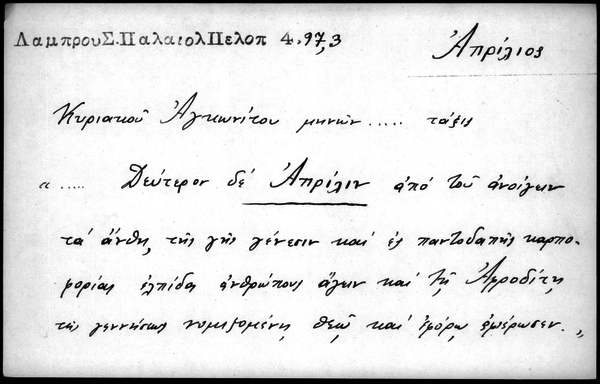 ΛαμπρουΣ.ΠαλαιολΠελοπ 4.97,3
Ἀπρίλιος
Κυριακοῦ Ἀγκωνίτου μηνῶν ..... τάξις
« ..... Δεύτερον δέ Ἀπρίλιν ἀπό τοῦ ἀνοίγειν
τά ἄνθη, τῆς γῆς γένεσιν καί ἐς παντοδαπῆς καρπο-
φορίας ἐλπίδα ἀνθρώπους ἄγειν καί τῇ Ἀφροδίτῃ
τῆς γεννήσεως νομιζομένῃ θεῷ καί ἐφόρῳ ἀφιέρωσεν. »